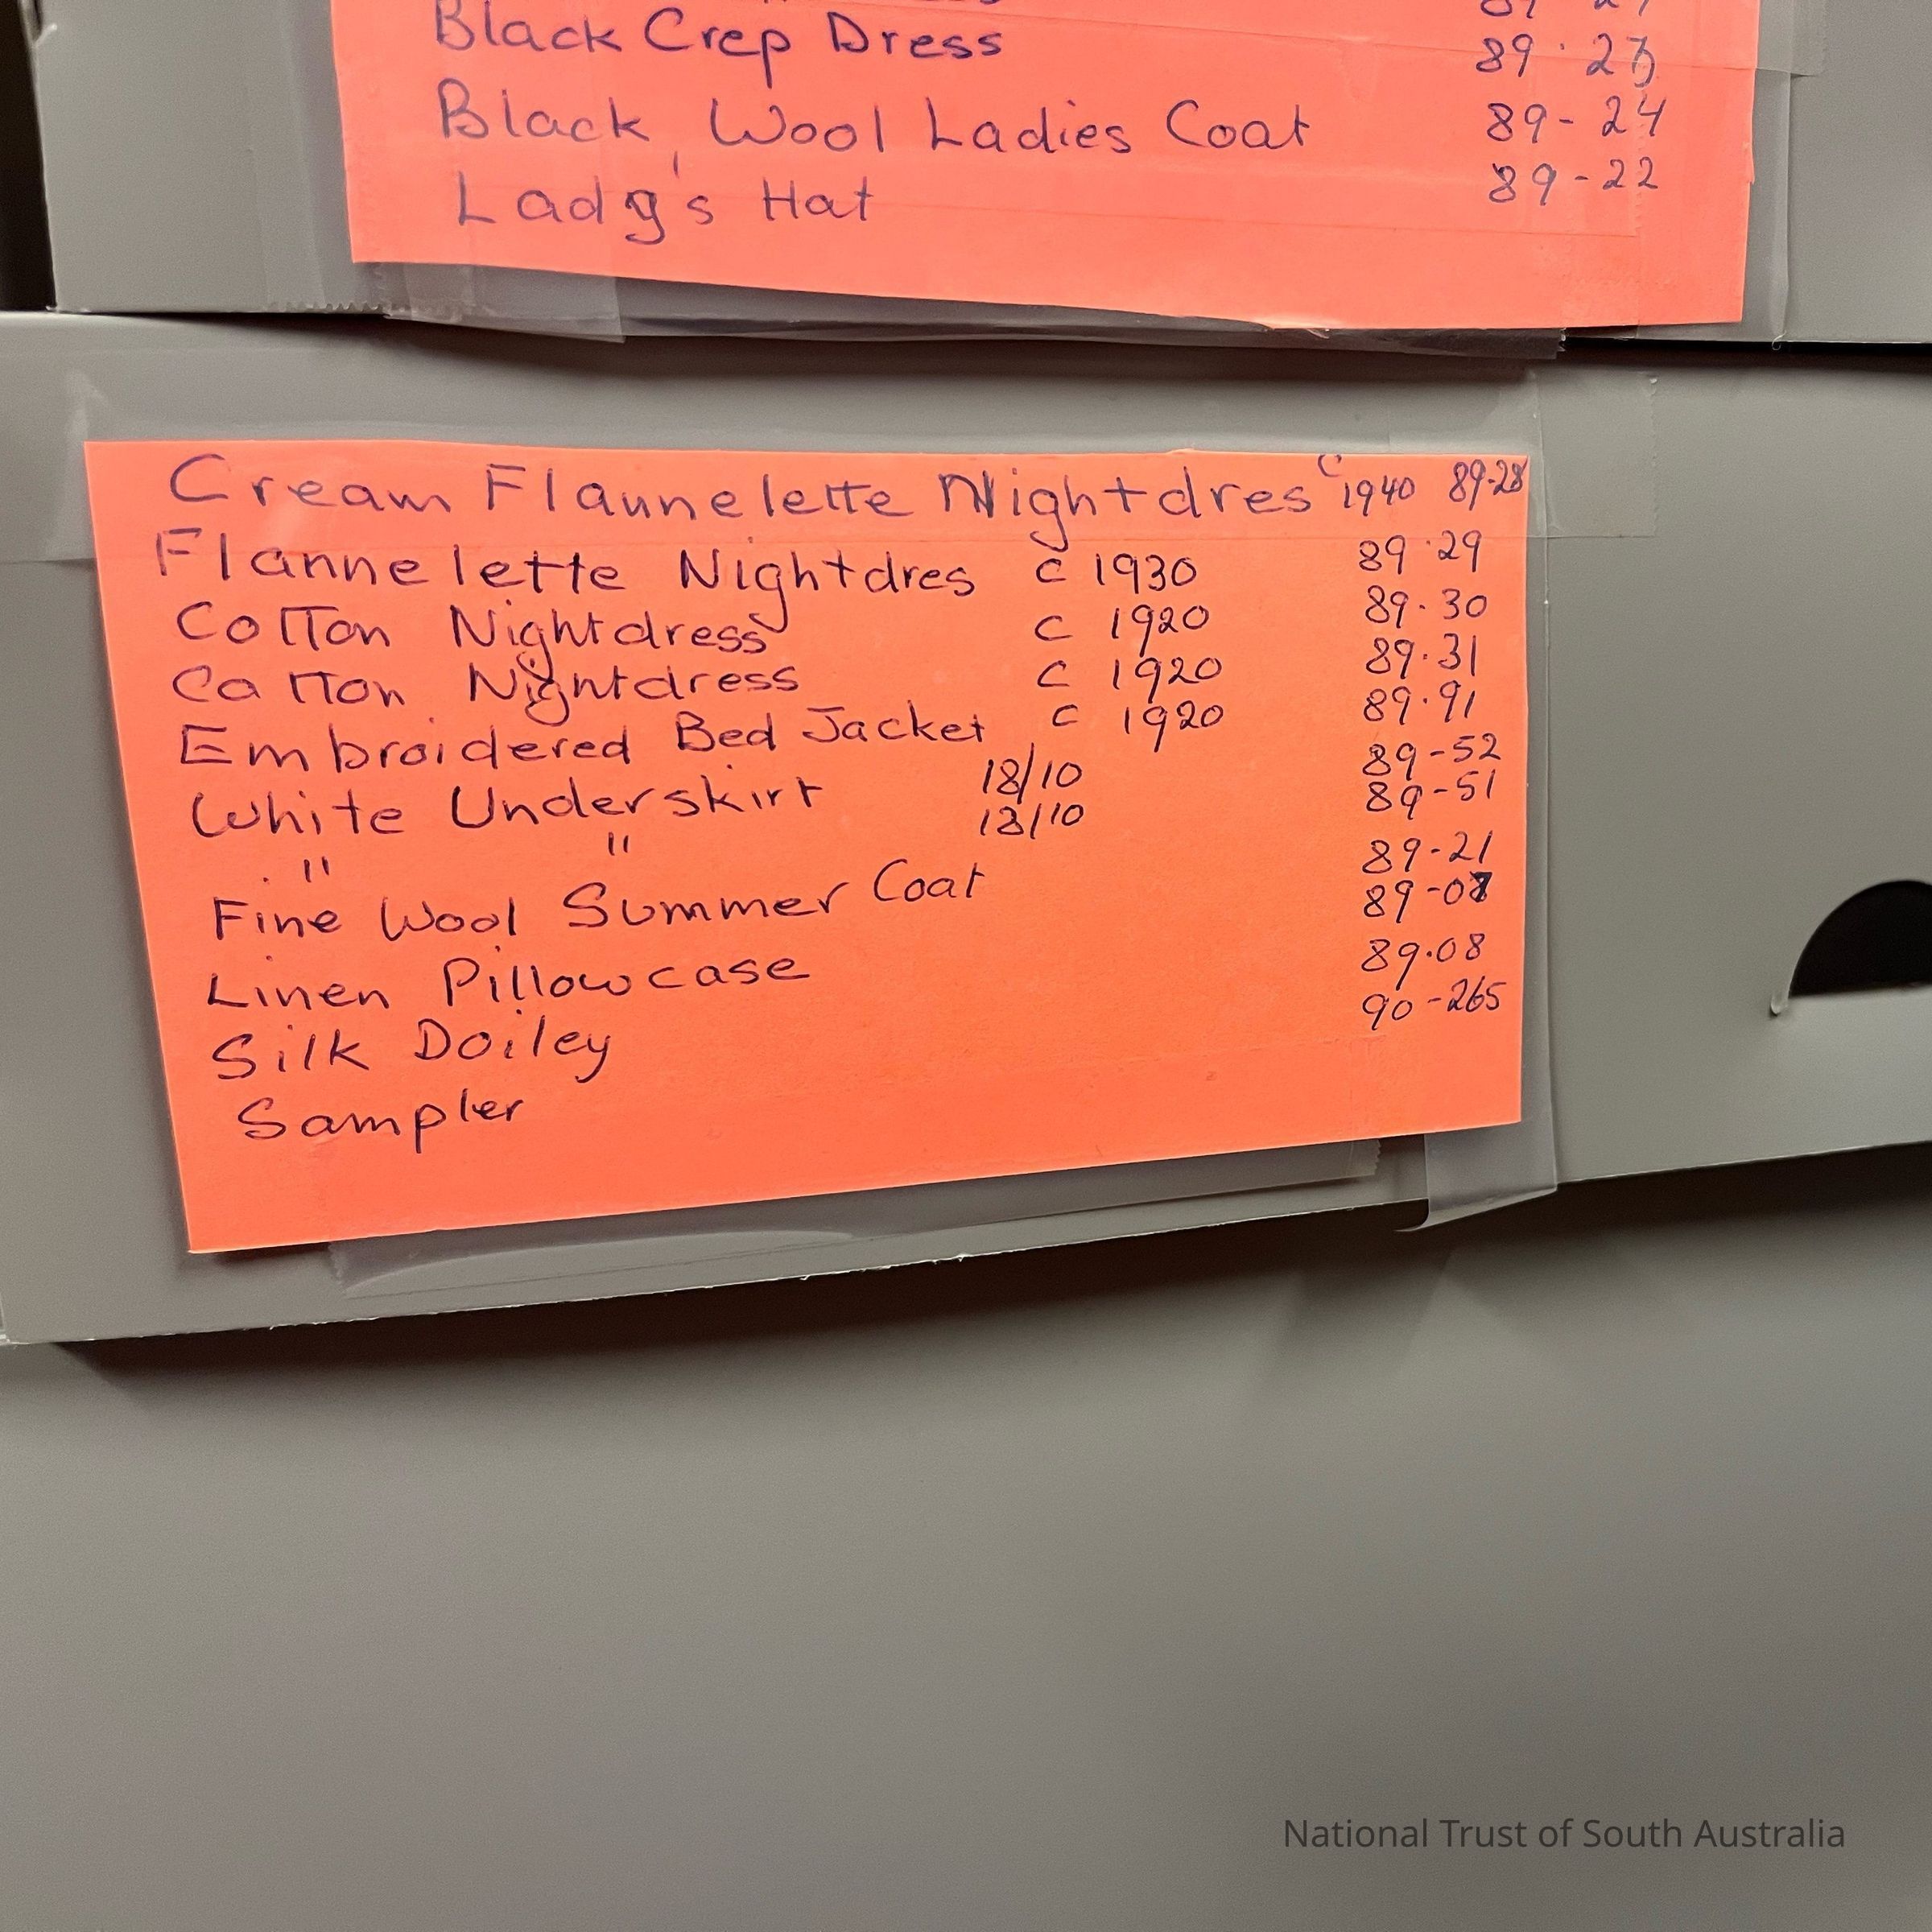 Black Crep Dress 89·23
Black Wool Ladies Coat 89-24
Lady's Hat 89-22
Cream Flannelette Nightdres c1940 89·28
Flannelette Nightdres c 1930 89·29
Cotton Nightdress c 1920 89·30
Cotton Nightdress c 1920 89·31
Embroidered Bed Jacket c 1920 89·91
White Underskirt 18/10 89-52
" " 18/10 89-51
Fine Wool Summer Coat 89-21
Linen Pillowcase 89-07
Silk Doiley 89·08
Sampler 90-265
National Trust of South Australia